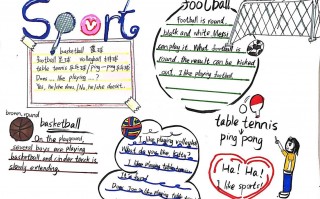 Sport
basketball 篮球
football 足球 volleyball 排球
table tennis 乒乓球 / ping-pong 乒乓球
Does ... like playing ...?
Yes, he/she does. / No, he/she doesn't.
football
Football is round.
black and white. Many
can play it. What football is
round. the result can be kicked
out. I like playing football.
brown, round
basketball
On the playground,
several boys are playing
basketball and
I like playing volleyball
What do you like
I like playing table tennis
Does like playing table tennis
table tennis
ping pong
Ha! Ha!
I like sports!